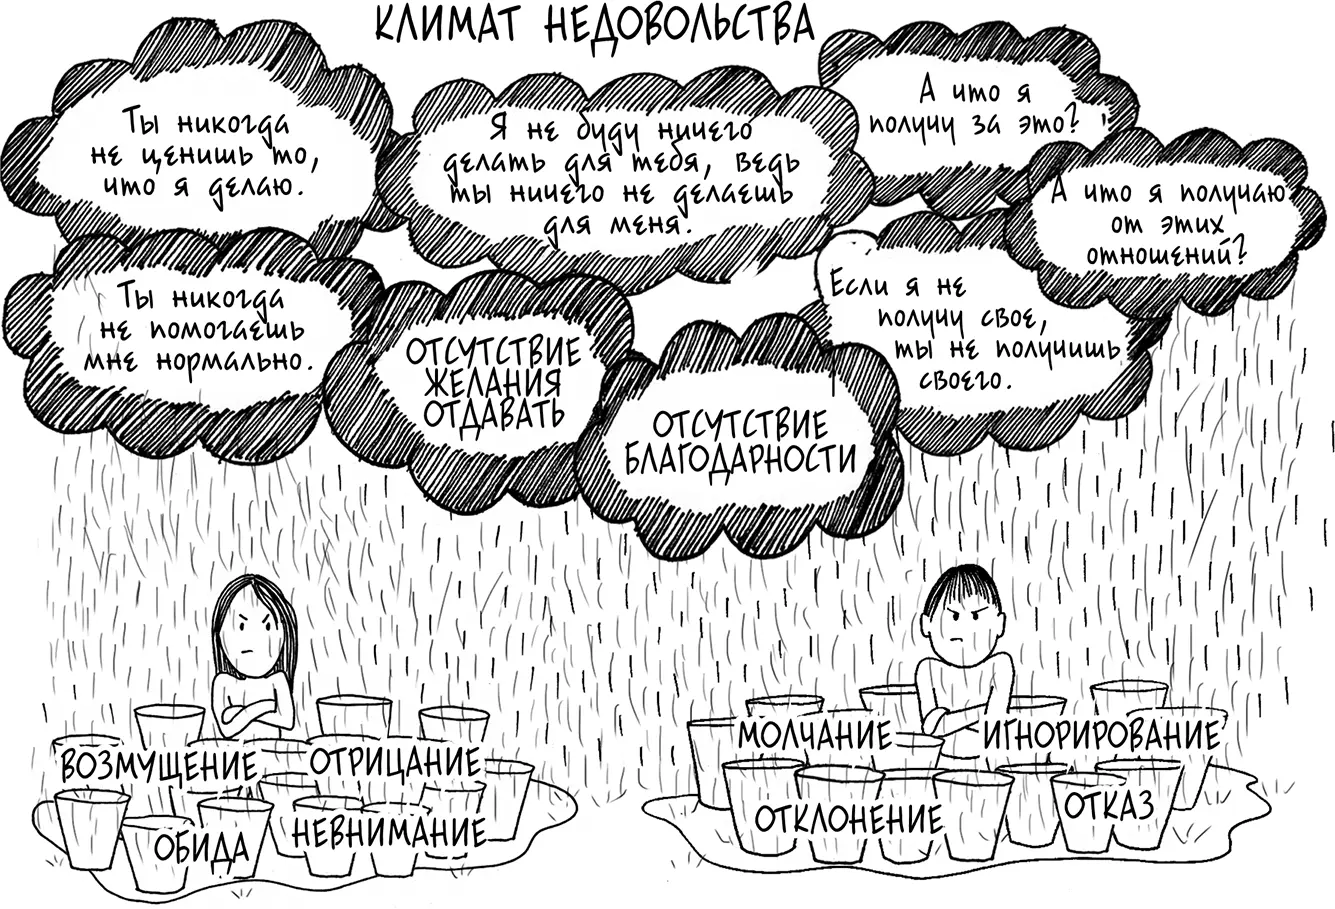 КЛИМАТ НЕДОВОЛЬСТВА
Ты никогда
не ценишь то,
что я делаю.
Я не буду ничего
делать для тебя, ведь
ты ничего не делаешь
для меня.
А что я
получу за это?
А что я получаю
от этих
отношений?
Ты никогда
не помогаешь
мне нормально.
ОТСУТСТВИЕ
ЖЕЛАНИЯ
ОТДАВАТЬ
ОТСУТСТВИЕ
БЛАГОДАРНОСТИ
Если я не
получу свое,
ты не получишь
своего.
ВОЗМУЩЕНИЕ
ОТРИЦАНИЕ
ОБИДА
НЕВНИМАНИЕ
МОЛЧАНИЕ
ИГНОРИРОВАНИЕ
ОТКЛОНЕНИЕ
ОТКАЗ